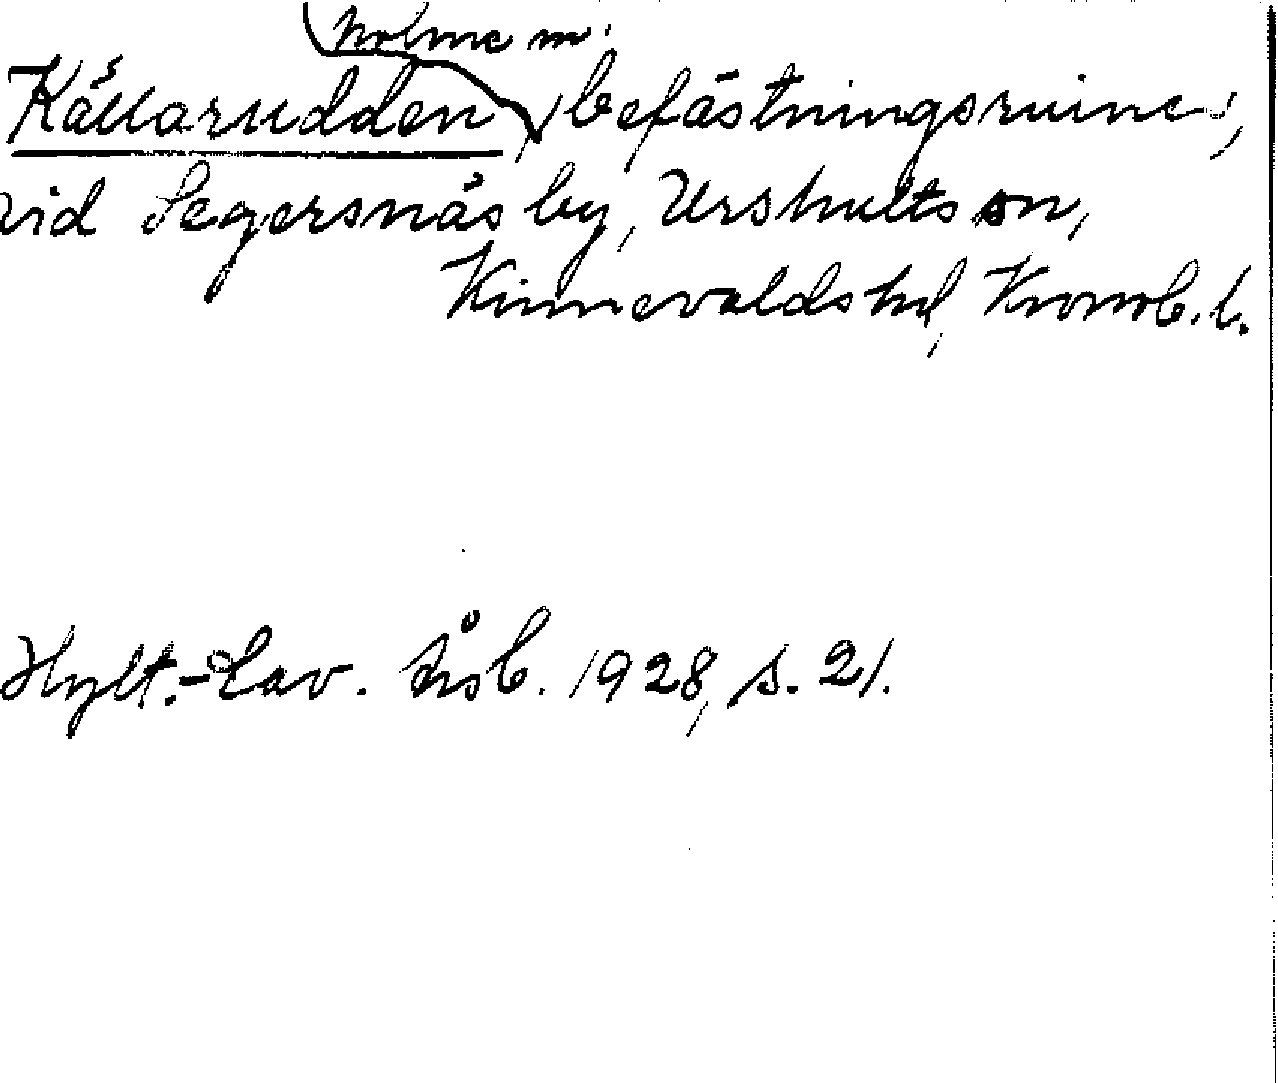 holme m.
Källarudden, befästningsruiner,
vid Segersnäs by, Urshults sn,
Kinnevalds hd, Kronob. l.
Hylt.-Cav. Årsb. 1928, s. 21.